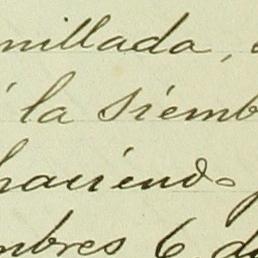 millada,
la siemb
haciendo
mbres 6, d